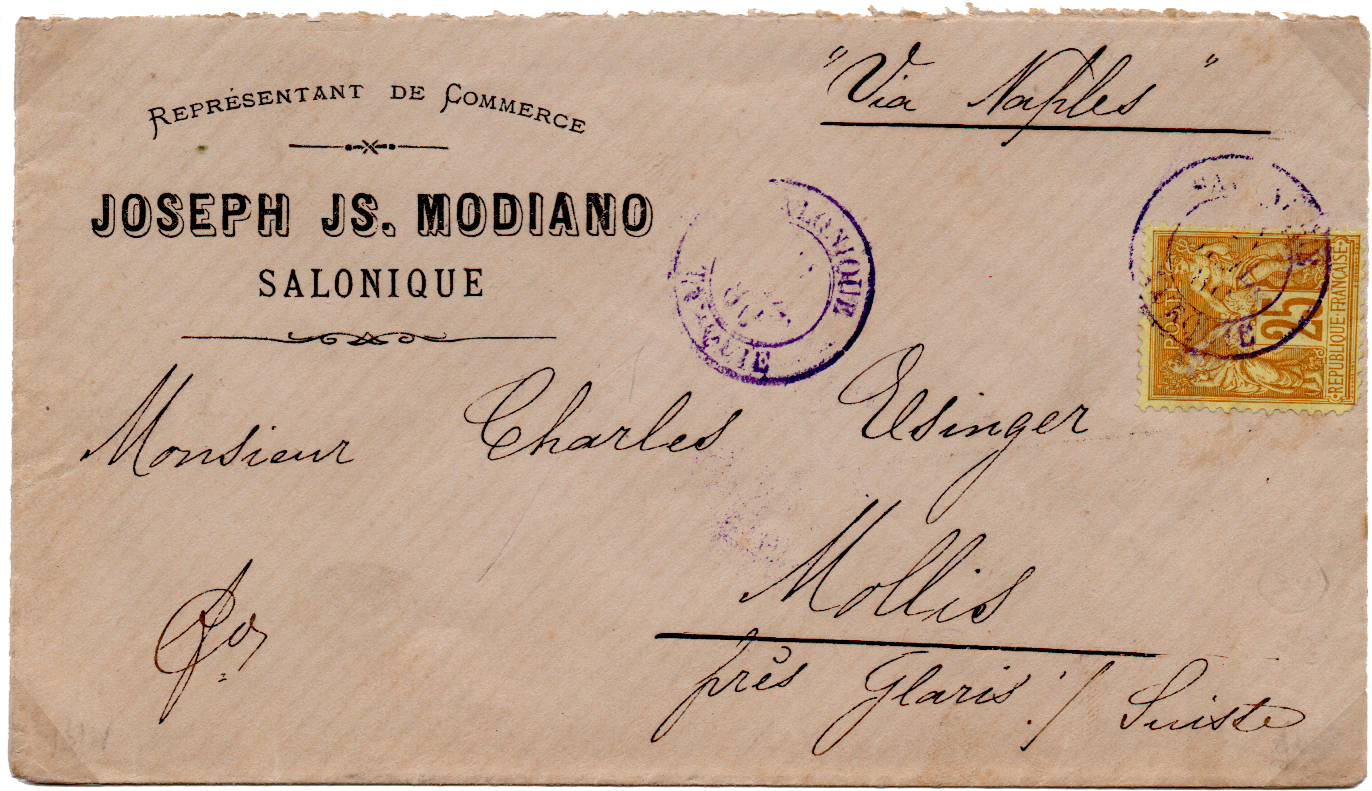 "Via Naples"
REPRÉSENTANT DE COMMERCE
JOSEPH JS. MODIANO
SALONIQUE
SALONIQUE
TURQUIE
POSTES
25
REPUBLIQUE FRANÇAISE
Monsieur Charles Elsinger
Mollis
près Glaris / Suisse